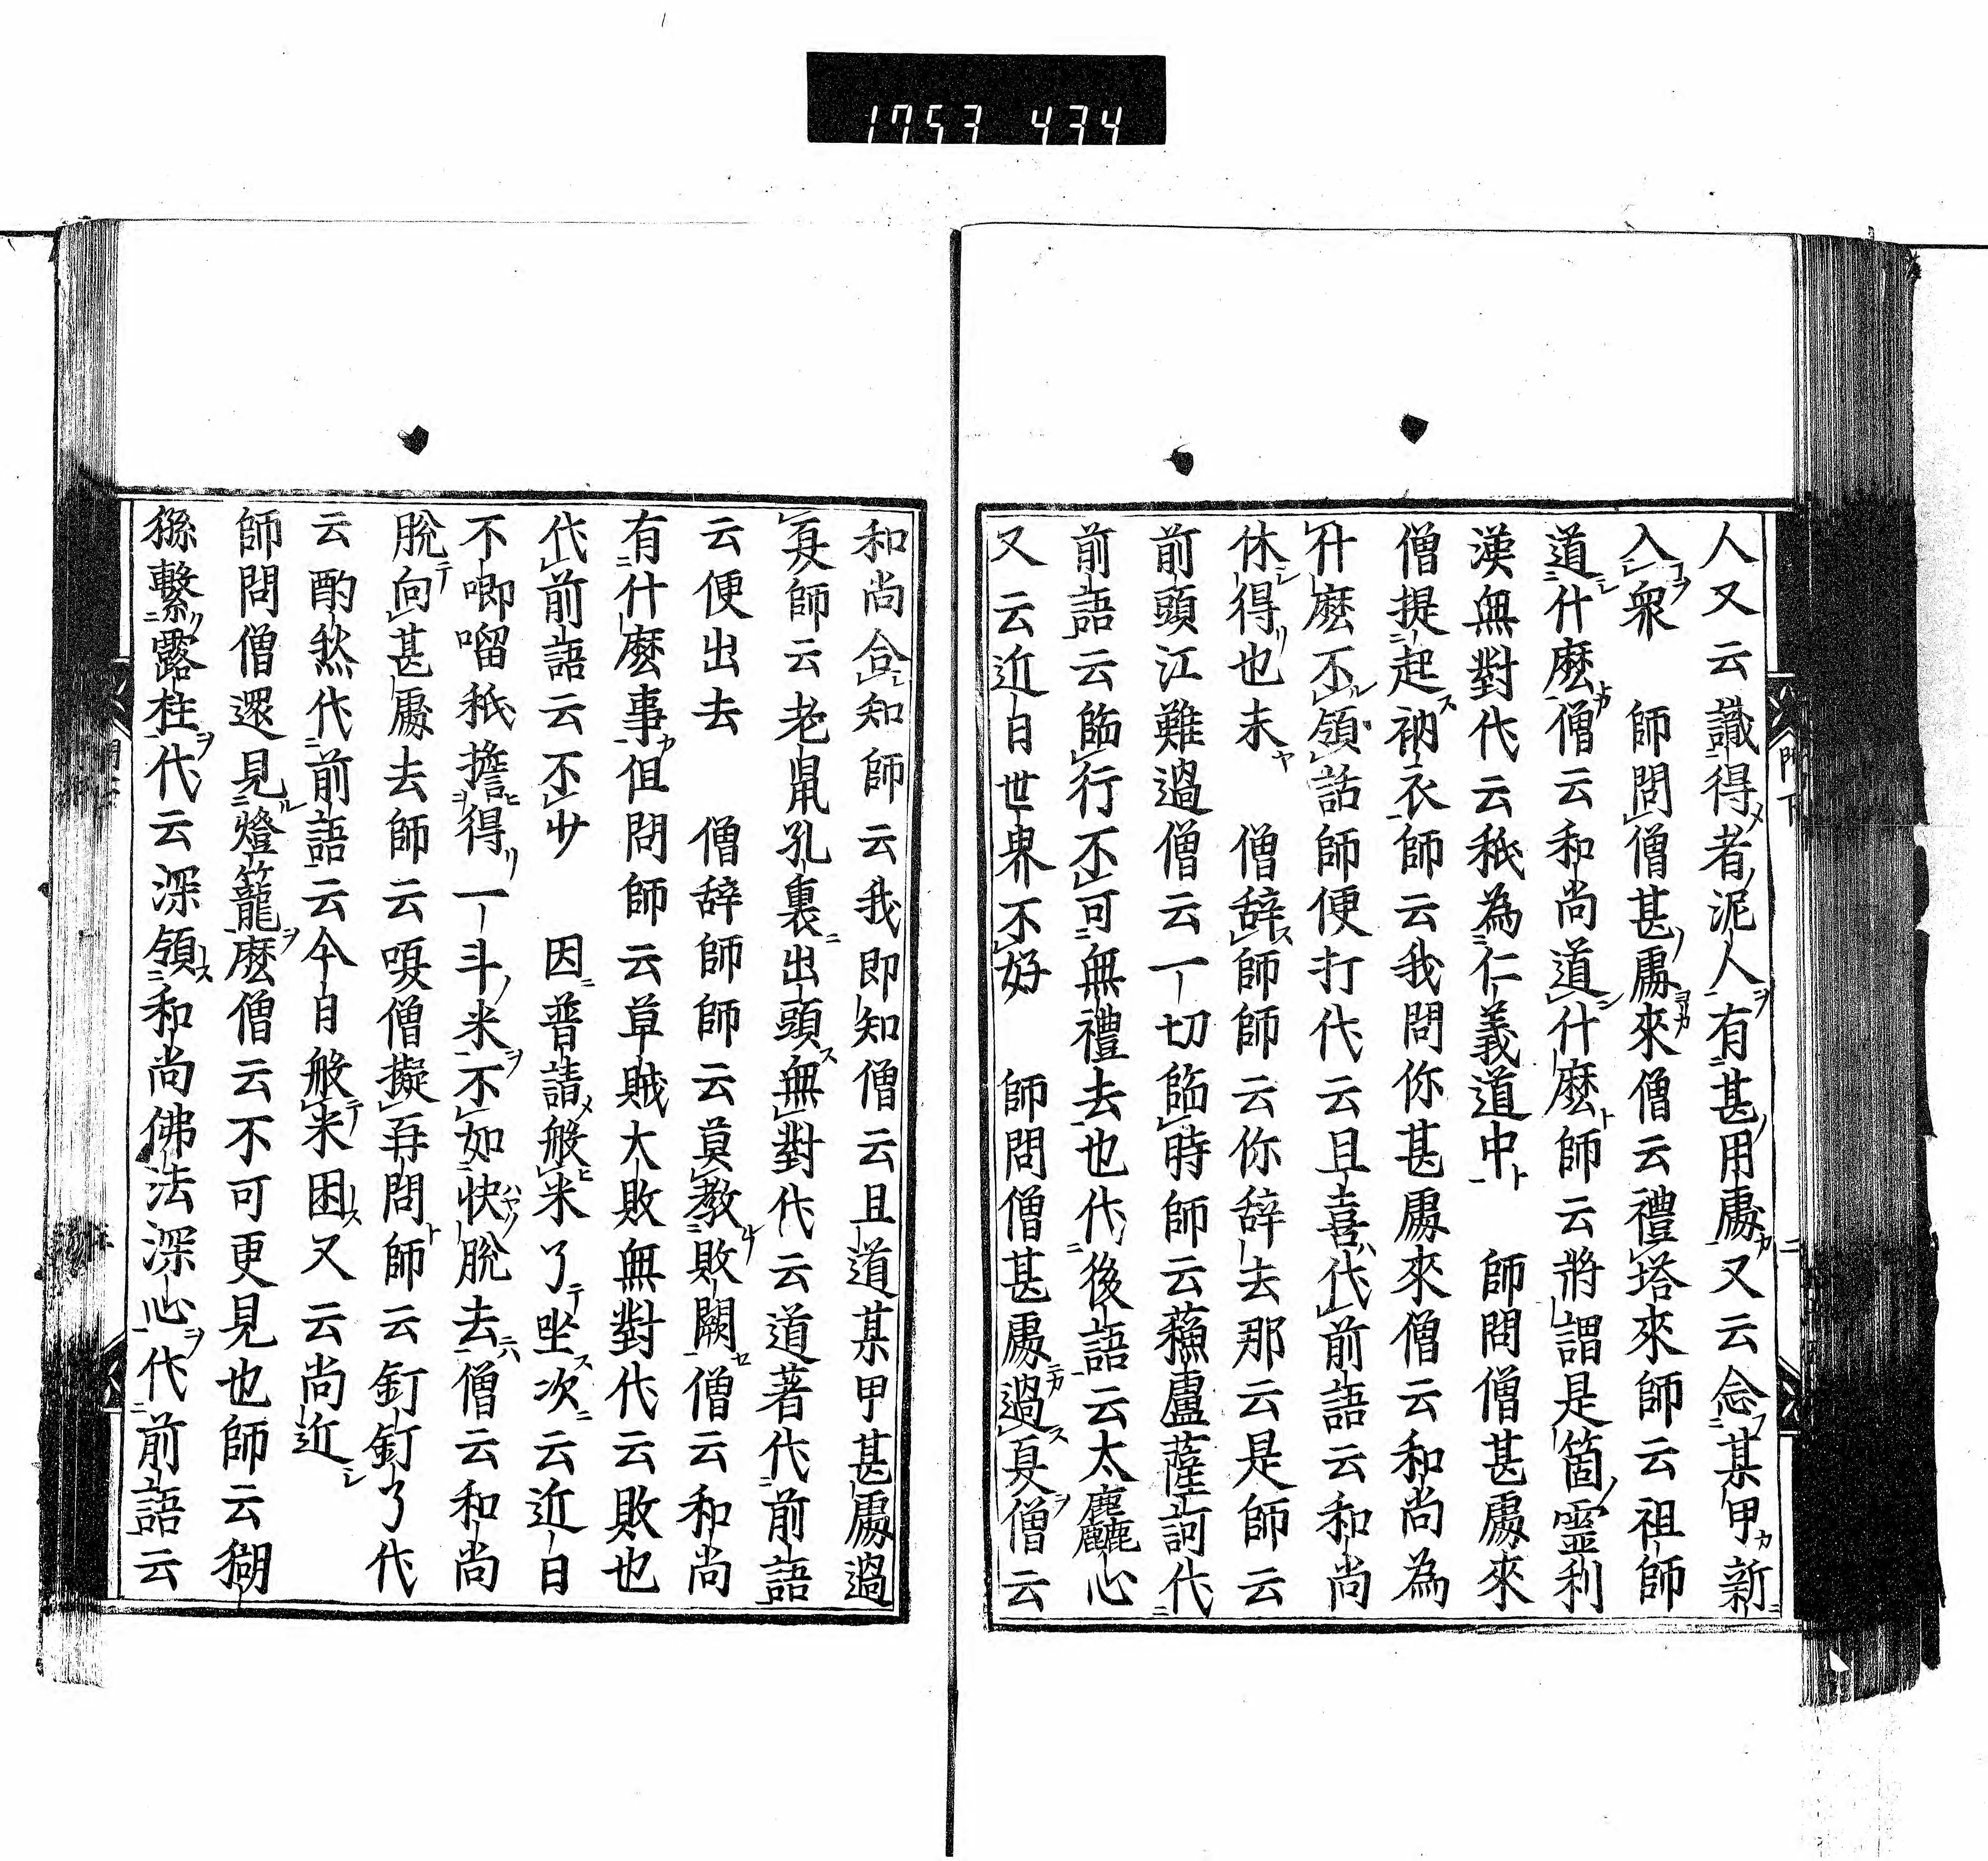 1753 434
人又云識得者泥人有甚用處又云念某甲新
入衆　師問僧甚處來僧云禮塔來師云祖師
道什麽僧云和尚道什麽師云將謂是箇靈利
漢無對代云秖為仁義道中　師問僧甚處來
僧提起衲衣師云我問你甚處來僧云和尚為
什麽不領話師便打代云且喜代前語云和尚
休得也未　僧辭師師云你辭去那云是師云
前頭江難過僧云一切臨時師云蘓盧薩訶代
前語云臨行不可無禮去也代後語云太麤心
又云近日世界不好　師問僧甚處過夏僧云
和尚合知師云我即知僧云且道某甲甚處過
夏師云老鼠孔裏出頭無對代云道著代前語
云便出去　僧辭師師云莫教敗闕僧云和尚
有什麽事但問師云草賊大敗無對代云敗也
代前語云不少　因普請般米了坐次云近日
不唧㗩秖擔得一斗米不如快脫去僧云和尚
脫向甚處去師云嗄僧擬再問師云釘釘了代
云酌然代前語云今日般米困又云尚近
師問僧還見燈籠麽僧云不可更見也師云猢
猻繫露柱代云深領和尚佛法深心代前語云